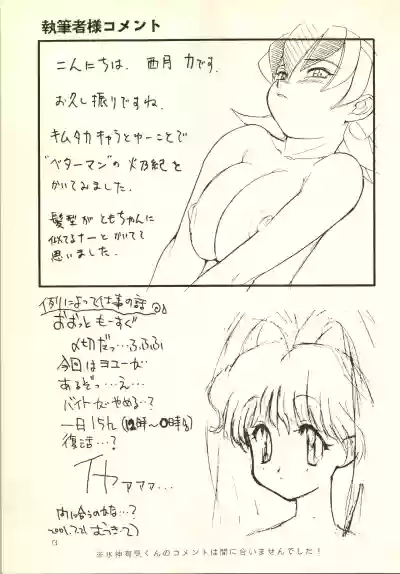 執筆者様コメント
こんにちは、西月 力です。
お久し振りですね。
キムタカキャラとゆーことで
"ベターマン"の火乃紀を
かいてみました。
髪型がともちゃんに
似てるナーとかいてて
思いました。
例によって仕事の話
おおっともーすぐ
〆切だっ…ふふふ
今回はヨユーが
あるぞっ…え…
バイトがやめる…?
一日15h(12時～0時)
復活…?
イヤァァァ…
間に合うのかな…?
※氷神有気くんのコメントは間に合いませんでした!